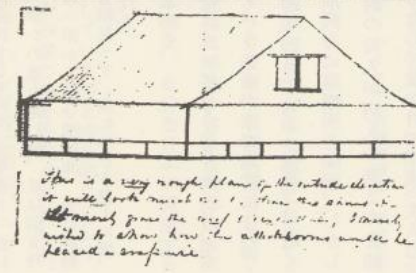 This is a very rough plan of the outside elevation
it will look much than this shows it
It merely gives the roof I merely
wished to show how the atticrooms would be
placed